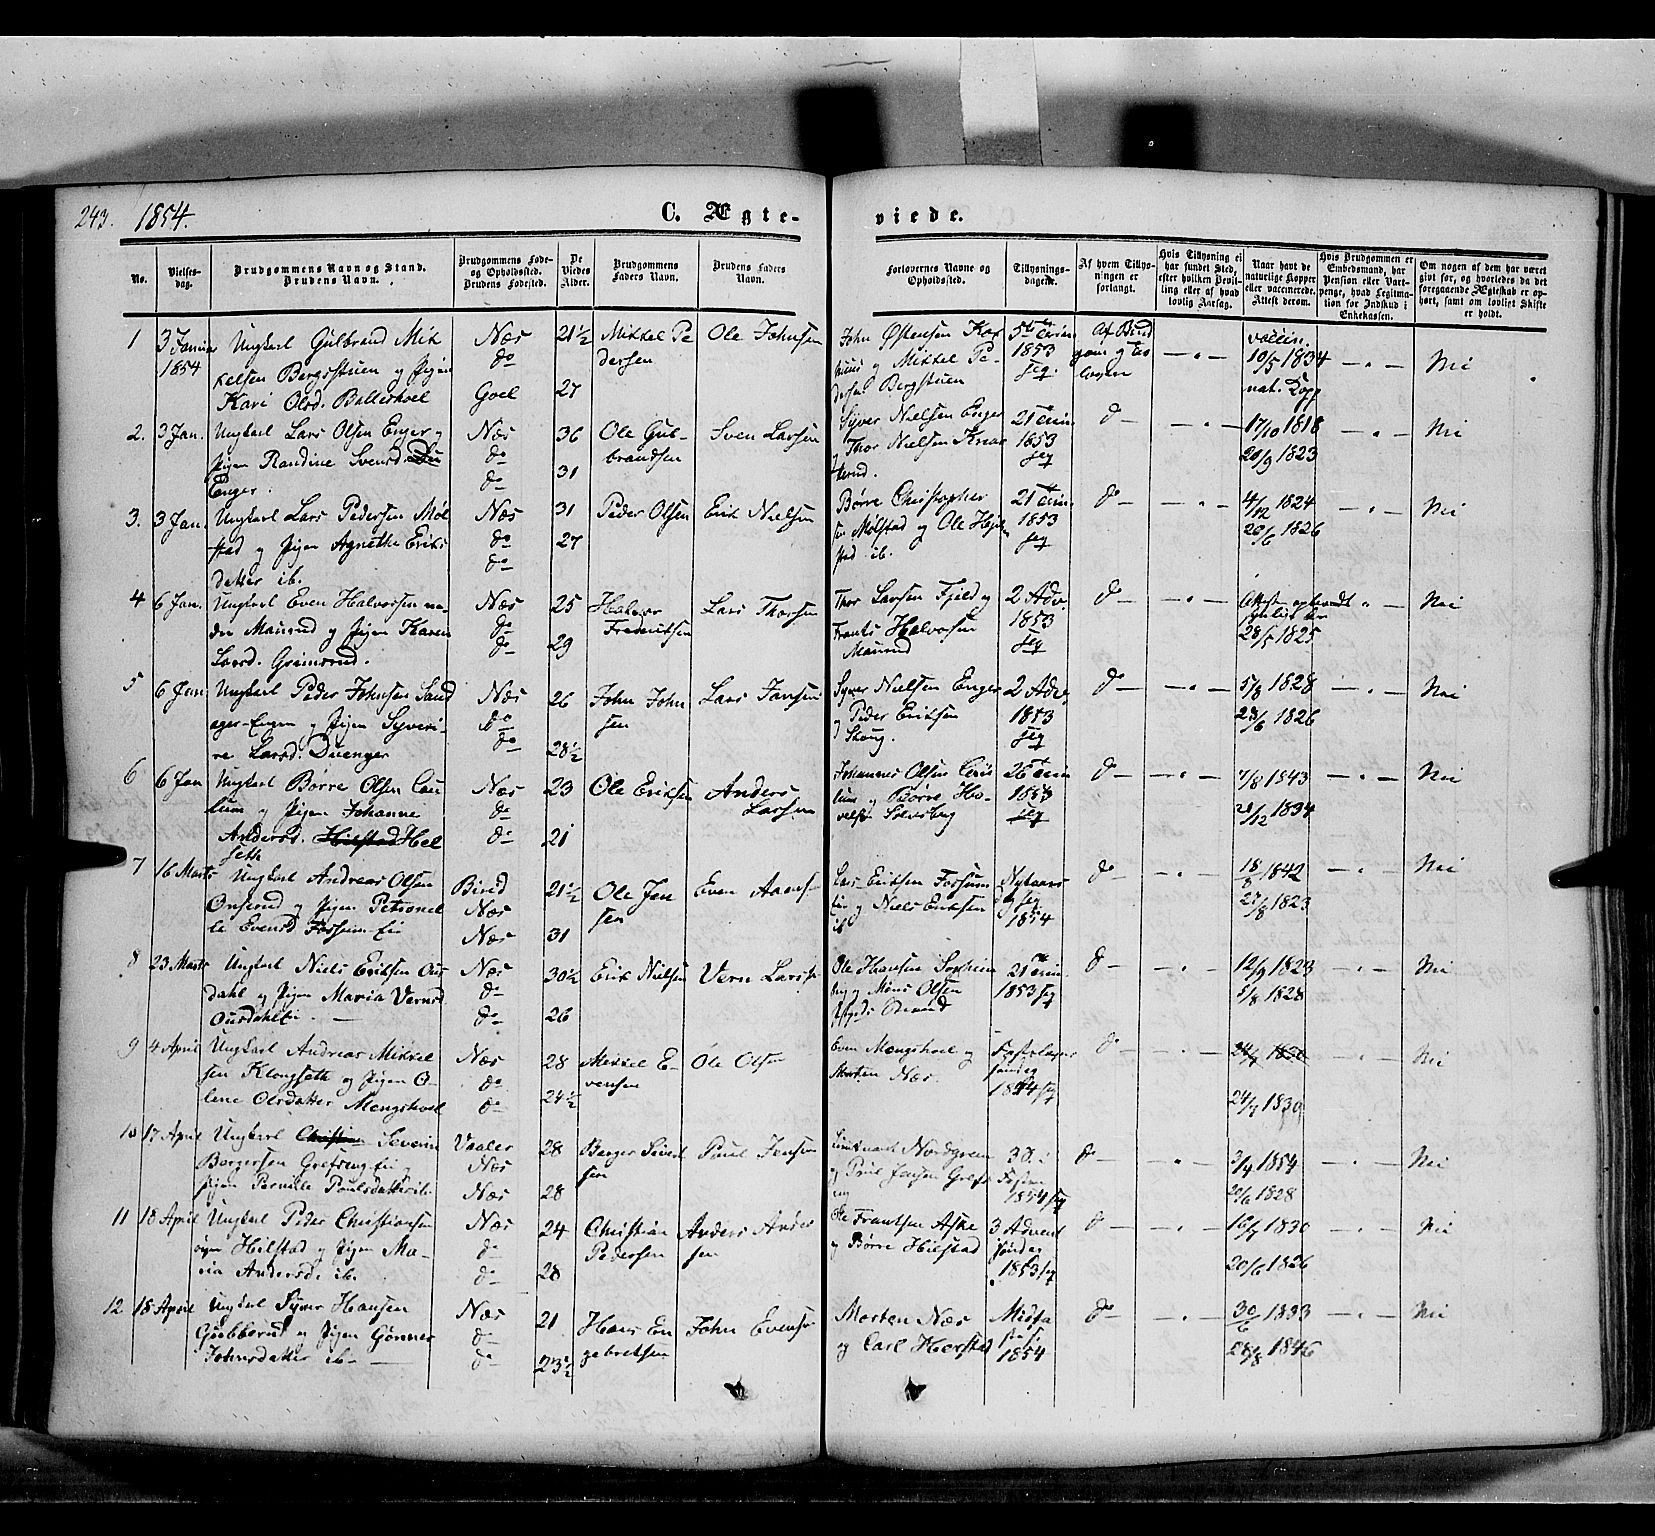 243. 1854. C. Ægte-
viede.
No.
Vielses-
dag.
Brudgommens Navn og Stand.
Brudens Navn.
Brudgommens Føde-
og Opholdssted.
Brudens Fødested.
De
Viedes
Alder.
Brudgommens
Faders Navn.
Brudens Faders
Navn.
Forlovernes Navne og
Opholdssted.
Tillysnings-
dagene.
Af hvem Tillys-
ningen er
forlangt.
Hvis Tillysning ei
har fundet Sted,
efter hvilken Bevil-
ling eller af hvad
lovlig Aarsag.
Naar havt de
naturlige Kopper
eller vaccinerede.
Attest derom.
Hvis Brudgommen er
Embedsmand, har
Pension eller Vart-
penge, hvad Legitima-
tion for Indskud i
Enkekassen.
Om nogen af dem har været
givt før, og hvorledes da det
foregaaende Ægteskab er op-
hørt, samt om lovligt Skifte
er holdt.
1
3 Januar
1854
Ungkarl Gulbrand Mik
kelsen Bergstuen og Pigen
Kari Olsd. Ballishoel
Næs
do
Goel
21½
27
Mikkel Pe
dersen
Ole Johnsen
John Østensen
og Mikkel Pe-
dersen Bergstuen
1853
Af Brud
gom og For
lover
vaccin.
10/5 1834
nat. Kopp
Nei
2.
3 Jan.
Ungkarl Lars Olsen Enger og
Pigen Randine Svensd.
Enger.
Næs
do
do
36
31
Ole Gul-
brandsen
Sven Larsen
Syver Nielsen Enger
og Thor Nielsen
21 Trin
1853
do
17/10 1818
20/9 1823
Nei
3.
3 Jan.
Ungkarl Lars Pedersen Møl
stad og Pigen Agnethe Eriks
datter ib.
Næs
do
do
31
27
Peder Olsen
Erik Nielsen
Børre Christopher
sen Mølstad og Ole
stad ib.
21 Trin
1853
do
4/12 1824
20/6 1826
Nei
4
6 Jan.
Ungkarl Even Halvorsen ne-
dre Maurud og Pigen Karen
Larsd. Grimsrud.
Næs
do
do
25
29
Halvor
Frederiksen
Lars Thorsen
Thor Larsen Fjeld og
Frants Halvorsen
Maurud
2 Adv.
1853
do
28/5 1825
Nei
5
6 Jan
Ungkarl Peder Johnsen Sand
ager-Engen og Pigen Syveri-
ne Larsd. Duenger
Næs
do
do
26
28½
John John
sen
Lars Jansen
Syver Nielsen Enger
og Peder Eriksen
Skoug.
2 Adv.
1853
do
5/8 1828
28/6 1826
Nei
6
6 Jan
Ungkarl Børre Olsen
og Pigen Johanne
Andersd. Hilstad Hel
seth
Næs
do
do
23
21
Ole Eriksen
Anders
Larsen
Johannes Olsen
og Børre Ho-
velsen Solvsberg
26 Trin
1853
do
7/8 1843
21/12 1834
Nei
7
16 Marts
Ungkarl Andreas Olsen
Onsrud og Pigen Petronel
le Evensd Fossum Ei
Birid
Næs
Næs
21½
31
Ole Jen
sen
Even
Lars Eriksen Fossum
og Niels Eriksen
ib
Nytaars
1854
do
18/8 1842
27/8 1823
Nei
8
23 Marts
Ungkarl Niels Eriksen Ous
dahl og Pigen Maria Vernsd
Ousdahlei.
Næs
do
do
30½
26
Erik Nielsen
Vern Larse
Ole Hansen
og Møns Olsen
21 Trin
1853
do
12/9 1823
5/8 1828
Nei
9
4 April
Ungkarl Andreas Mikkel
sen Klongseth og Pigen O-
lene Olsdatter Mengshoel
Næs
do
do
28
24½
Mikkel E-
vensen
Ole Olsen
Even Mengshoel og
Morten Næs.
Fastelavns
søndag
1854
do
24/7 1830
24/7 1839
Nei
10
17 April
Ungkarl Christian Severin
Borgersen Grefseng Ei og
Pigen Pernille Poulsdatter ib.
Vaaler
Næs
Næs
28
28
Borger Sivert
sen
Poul Jensen
Nordgren
og Poul Jensen Grefs
eng
3 S. i
Fasten
1854
do
3/4 1854
20/6 1828
Nei
11
18 April
Ungkarl Peder Christiansen
Hilstad og Pigen Ma-
ria Andersd. ib.
Næs
do
do
24
28
Christian
Pedersen
Anders Ander
sen
Ole Frantsen Aske
og Børre Hilstad
3 Advent
søndag
1853
do
16/7 1830
20/6 1826
Nei
12
18 April
Ungkarl Syver Hansen
Gubberud og Pigen Gønner
Johnsdatter ib.
Næs
do
do
21
23½
Hans En
gebretsen
John Evense
Morten Næs
og Carl Herstad
Midfa
ste
1854
do
30/6 1833
28/8 1846
Nei